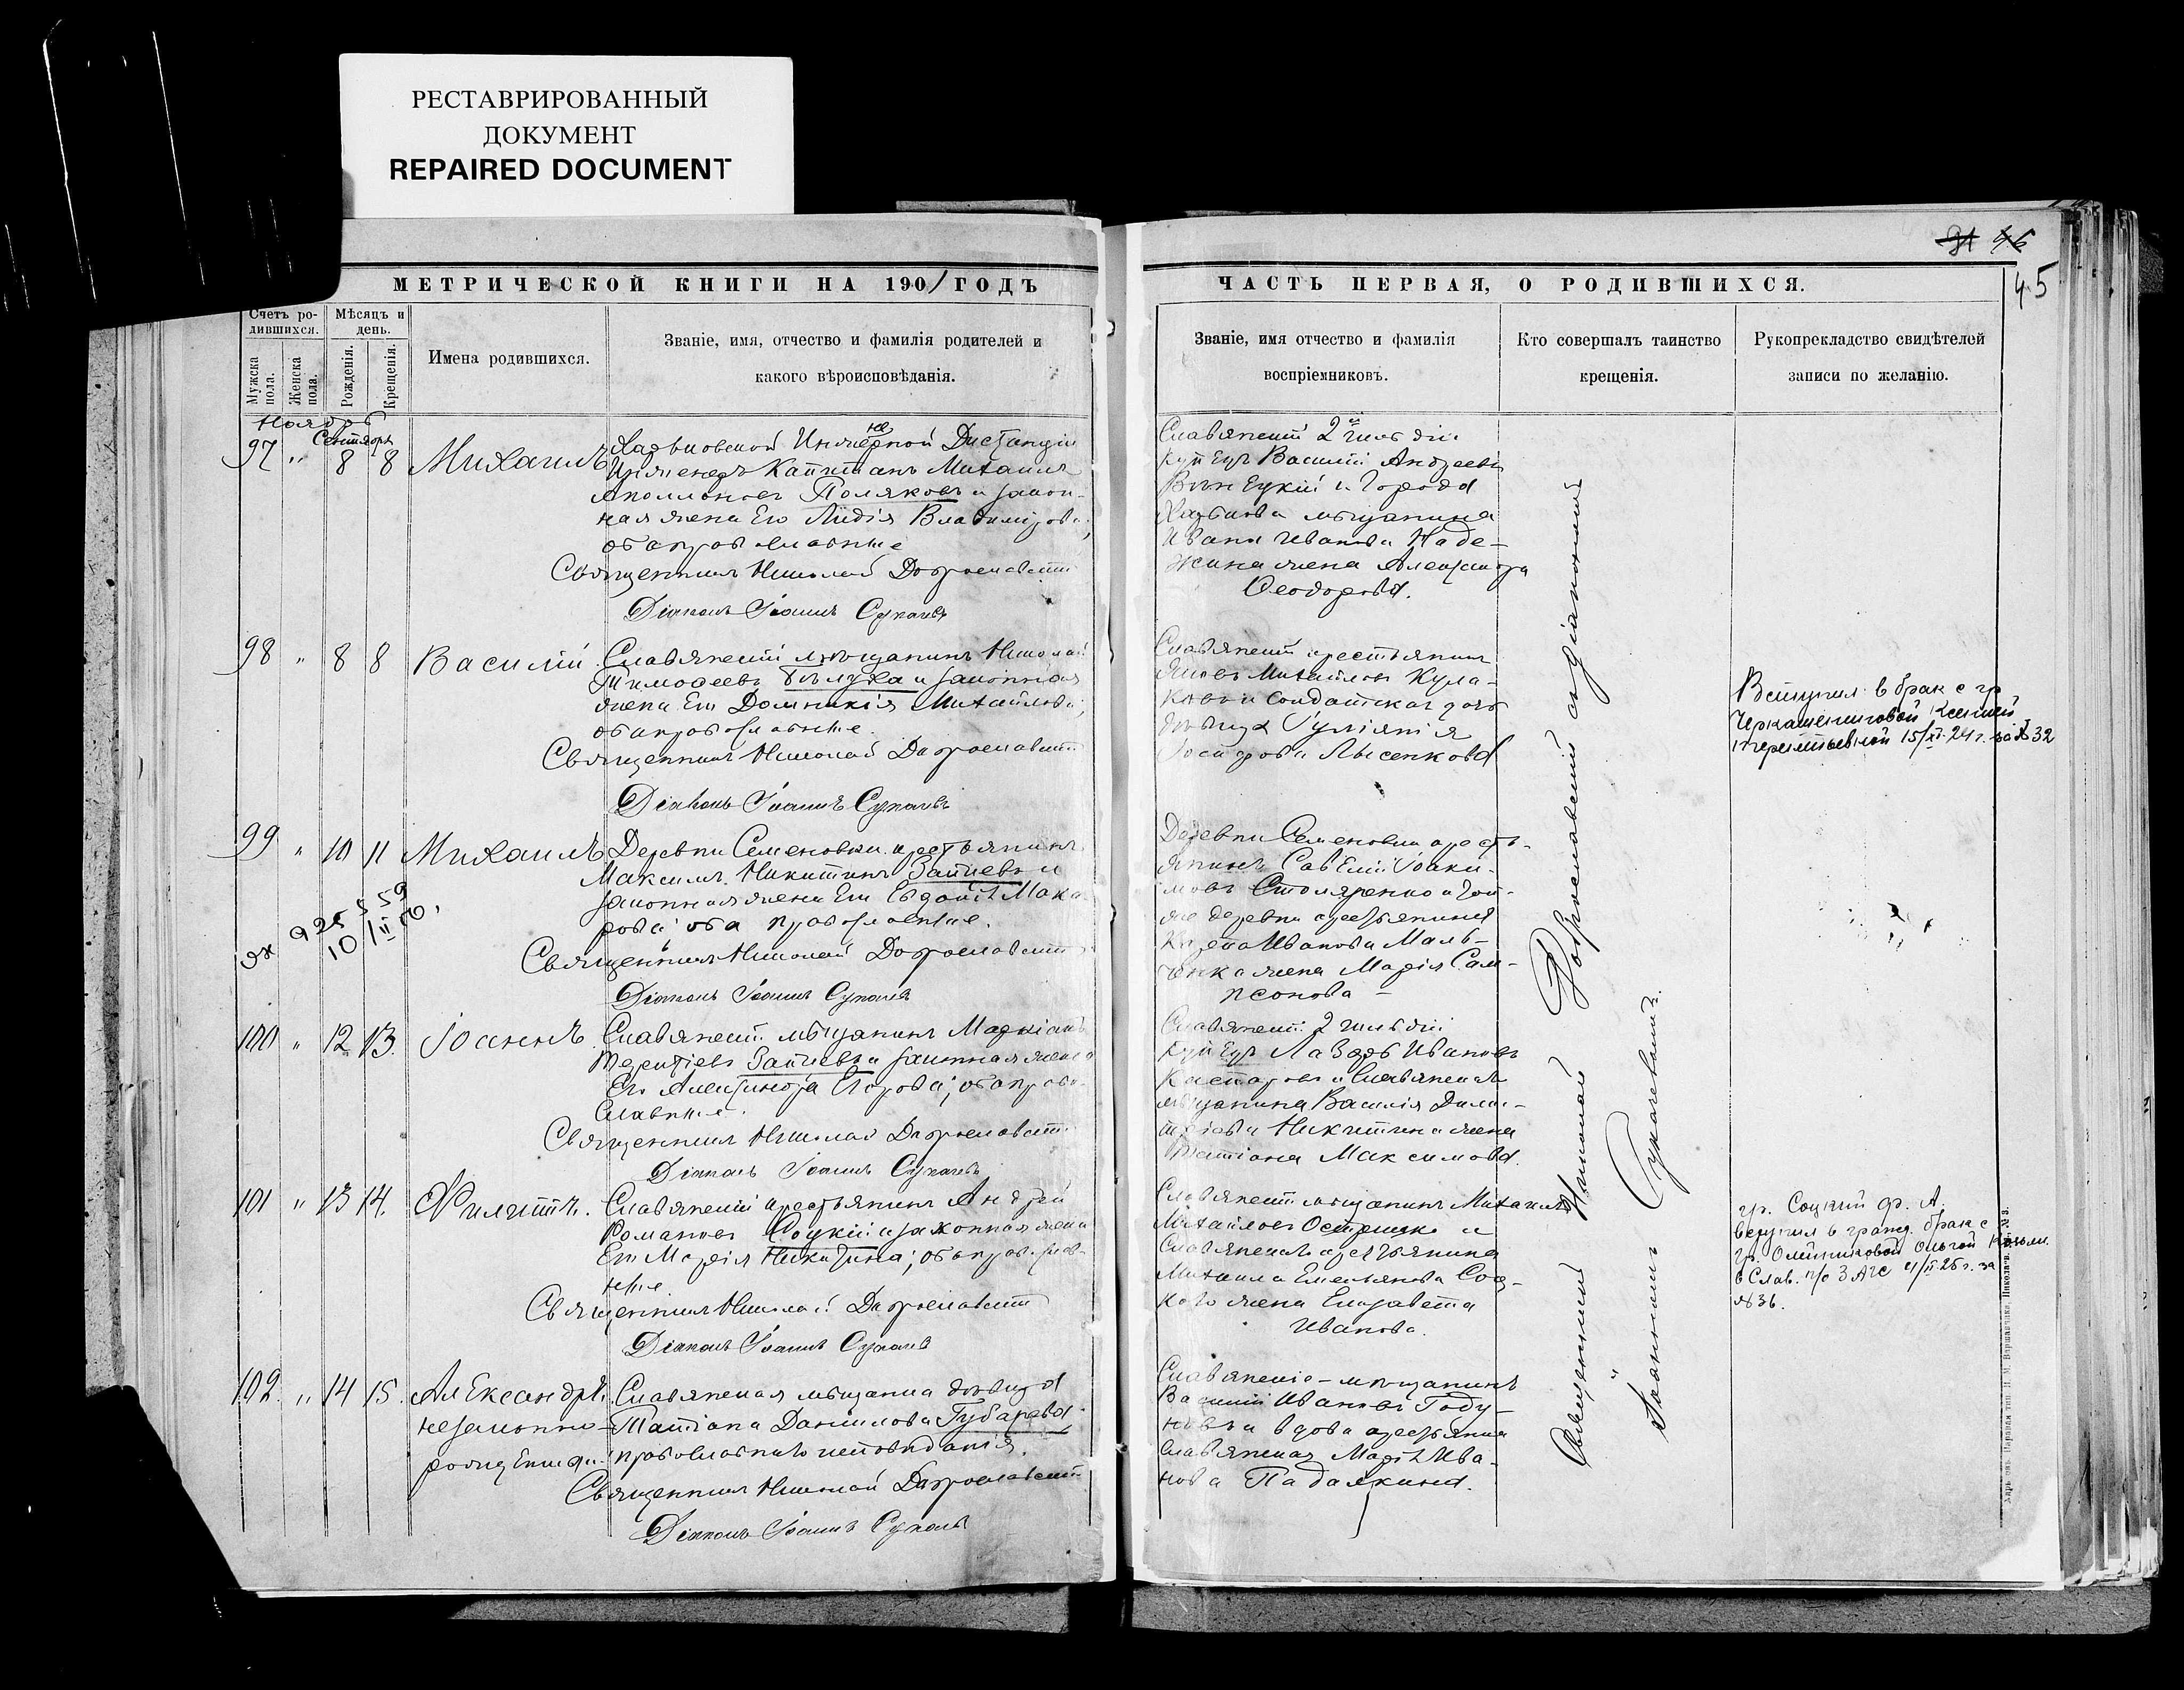 РЕСТАВРИРОВАННЫЙ
ДОКУМЕНТ
REPAIRED DOCUMENT
МЕТРИЧЕСКОЙ КНИГИ НА 1901 ГОДЪ
Счетъ ро-
дившихся.
Мѣсяцъ и
день.
Мужска
пола.
Женска
пола.
Рожденія.
Крещенія.
Имена родившихся.
Званіе, имя, отчество и фамилія родителей и
какого вѣроисповѣданія.
Ноябрь
Сентябрь
97 " 8 8 Михаилъ
Харьковской Инженерной Дистанціи
Инженеръ Капитанъ Михаилъ
Аполлоновъ Поляковъ и закон-
ная жена Его Лидія Владимірова,
оба православные
Священникъ Николай Доброславскій
Діаконъ Іоаннъ Сукачевъ
98 " 8 8 Василій
Славянскій мѣщанинъ Николай
Тимофеевъ Бѣлуха и законная
жена Его Домникія Михайлова;
оба православные.
Священникъ Николай Доброславскій
Діаконъ Іоаннъ Сукачевъ
99 " 10 11 Михаилъ
Деревни Семеновки крестьянинъ
Максимъ Никитинъ Зайцевъ и
законная жена Его Евдокія Мака
рова; оба православные.
эх 925559
10/II 6.
Священникъ Николай Доброславскій
Діаконъ Іоаннъ Сукачевъ
100 " 12 13. Іоаннъ.
Славянскій мѣщанинъ Маркіанъ
Терентіевъ Зайцевъ и законная жена
Его Александра Егорова; оба право-
славные.
Священникъ Николай Доброславскій
Діаконъ Іоаннъ Сукачевъ
101 " 13 14. Филиппъ.
Славянскій крестьянинъ Андрей
Романовъ Соцкій и законная жена
Его Марія Никитина; оба православ-
ные.
Священникъ Николай Доброславскій
Діаконъ Іоаннъ Сукачевъ
102. " 14 15. Александръ
незаконно-
рожденный
Славянская мѣщанка дѣвица
Татіана Даніилова Губарева
православнаго исповѣданія.
Священникъ Николай Доброславскій
Діаконъ Іоаннъ Сукачевъ
91 46
45
ЧАСТЬ ПЕРВАЯ, О РОДИВШИХСЯ.
Званіе, имя отчество и фамилія
воспріемниковъ.
Кто совершалъ таинство
крещенія.
Рукоприкладство свидѣтелей
записи по желанію.
Славянскій 2й гильдіи
купецъ Василій Андреевъ
и Города
Харькова мѣщанина
Ивана Иванова Наде-
жина жена Александра
Ѳеодорова.
Славянскій крестьянинъ
Яковъ Михайловъ Кула-
ковъ и солдатская дочь
дѣвица Іуліанія
Лысенкова
Деревни Семеновки кресть-
янинъ Савелій Іоаки-
мовъ Столяренко и той-
же деревни крестьянина
Ивanова Маль-
ченка жена Марія Сам-
псонова
Славянскій 2 гильдіи
купецъ Лазарь Ивановъ
и Славянскаго
мѣщанина Василія Дими-
тріева Никитина жена
Татіана Максимова.
Славянскій мѣщанинъ Михаилъ
Михайловъ и
Славянскаго крестьянина
Михаила Емельянова Соц-
каго жена Елизавета
Иванова.
Славянскіе - мѣщанинъ
Василій Ивановъ Году-
новъ и вдова крестьянка
Славянская Марія Ива-
нова Падалкина.
Священникъ Николай Доброславскій съ діакономъ
Іоанномъ Сукачевымъ.
Вступил в брак с гр
Ксенией
15/XI 24 г. за № 32
гр. Соцкий Ф. А.
вступил в гражд. брак с
гр. Олейниковой Ольгой Кузьм.
в Слав. п/о ЗАГС 4/II 25 г. за
№ 36.